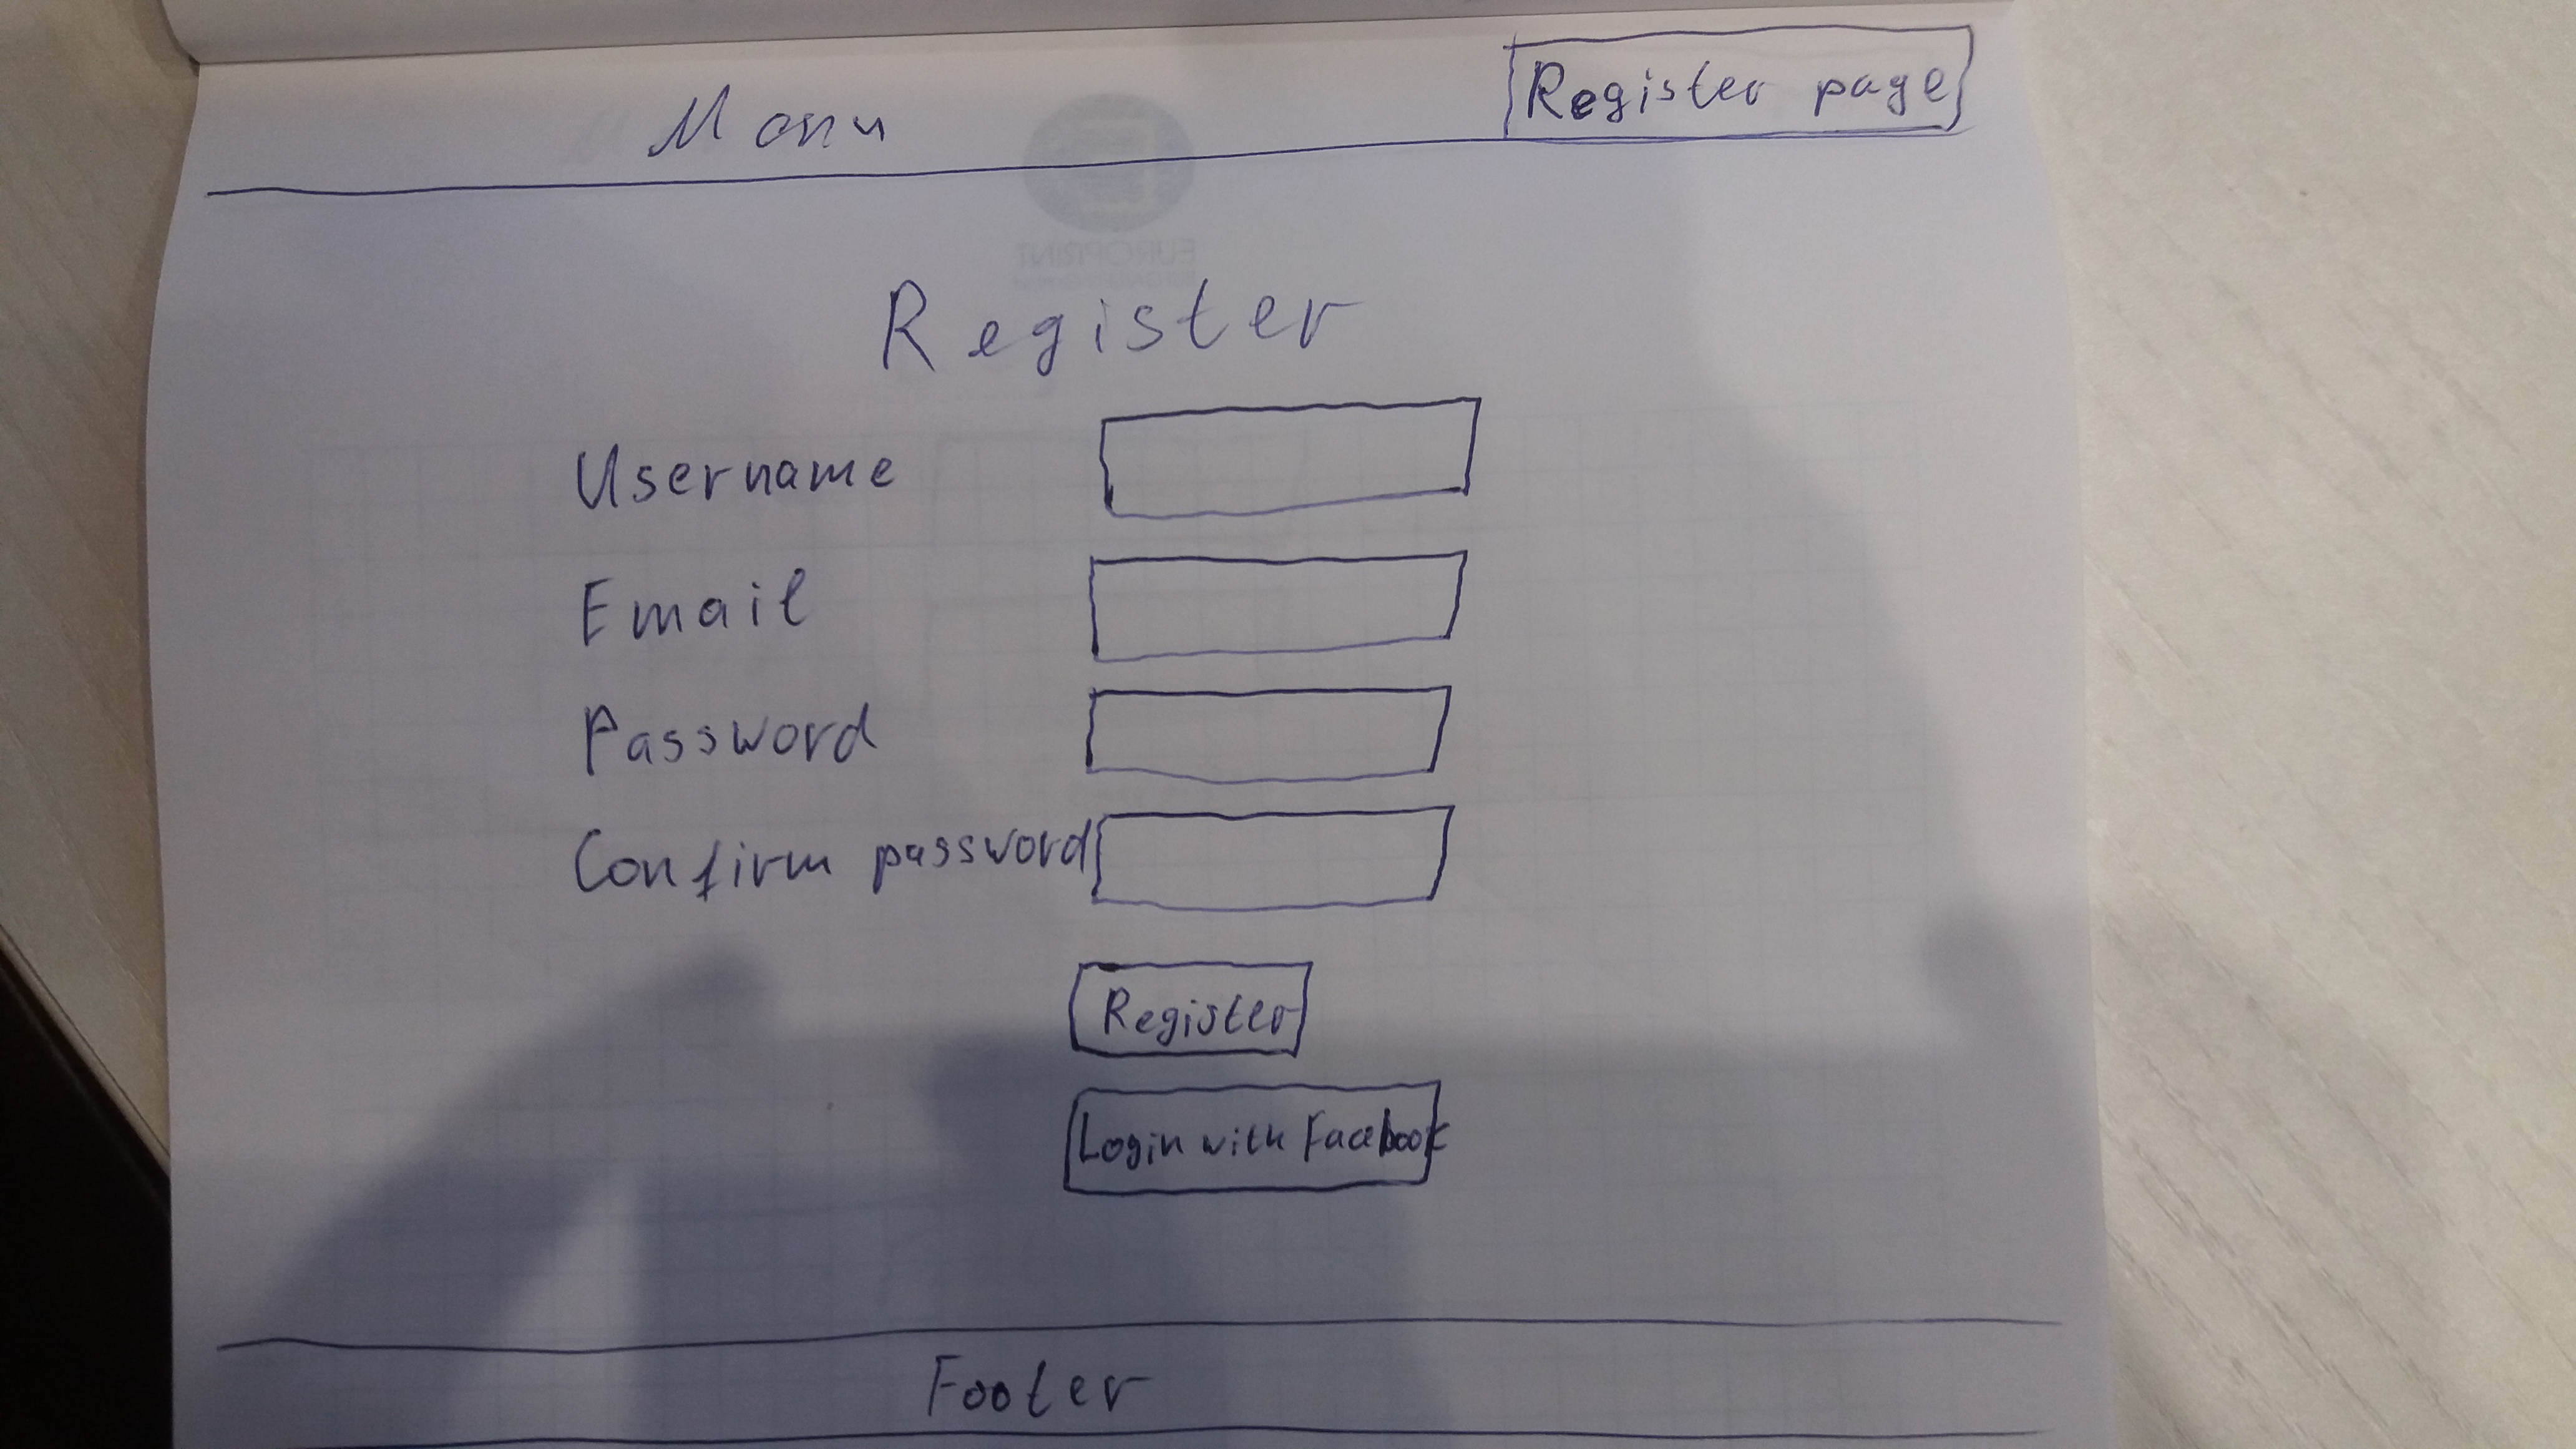 Register page
Menu
Register
Username
Email
Password
Confirm password
Register
Login with Facbook
Footer